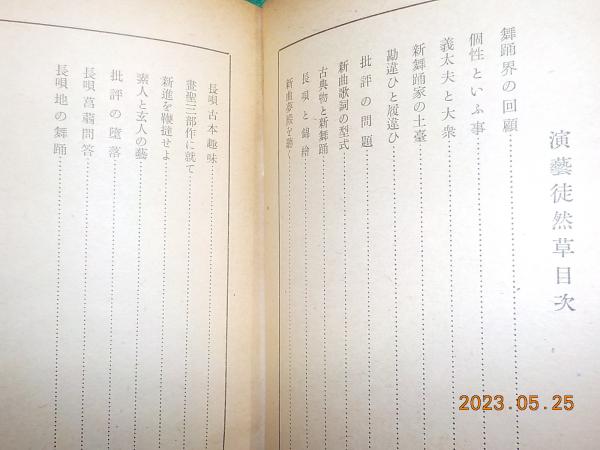 演藝徒然草目次
舞踊界の回顧
個性といふ事
義太夫と大衆
新舞踊家の土臺
勘違ひと履違ひ
批評の問題
新曲歌詞の型式
古典物と新舞踊
長唄と錦繪
新曲夢殿を聽く
長唄古本趣味
畫聖三部作に就て
新進を鞭撻せよ
素人と玄人の藝
批評の墮落
長唄蒟蒻問答
長唄地の舞踊
2023.05.25